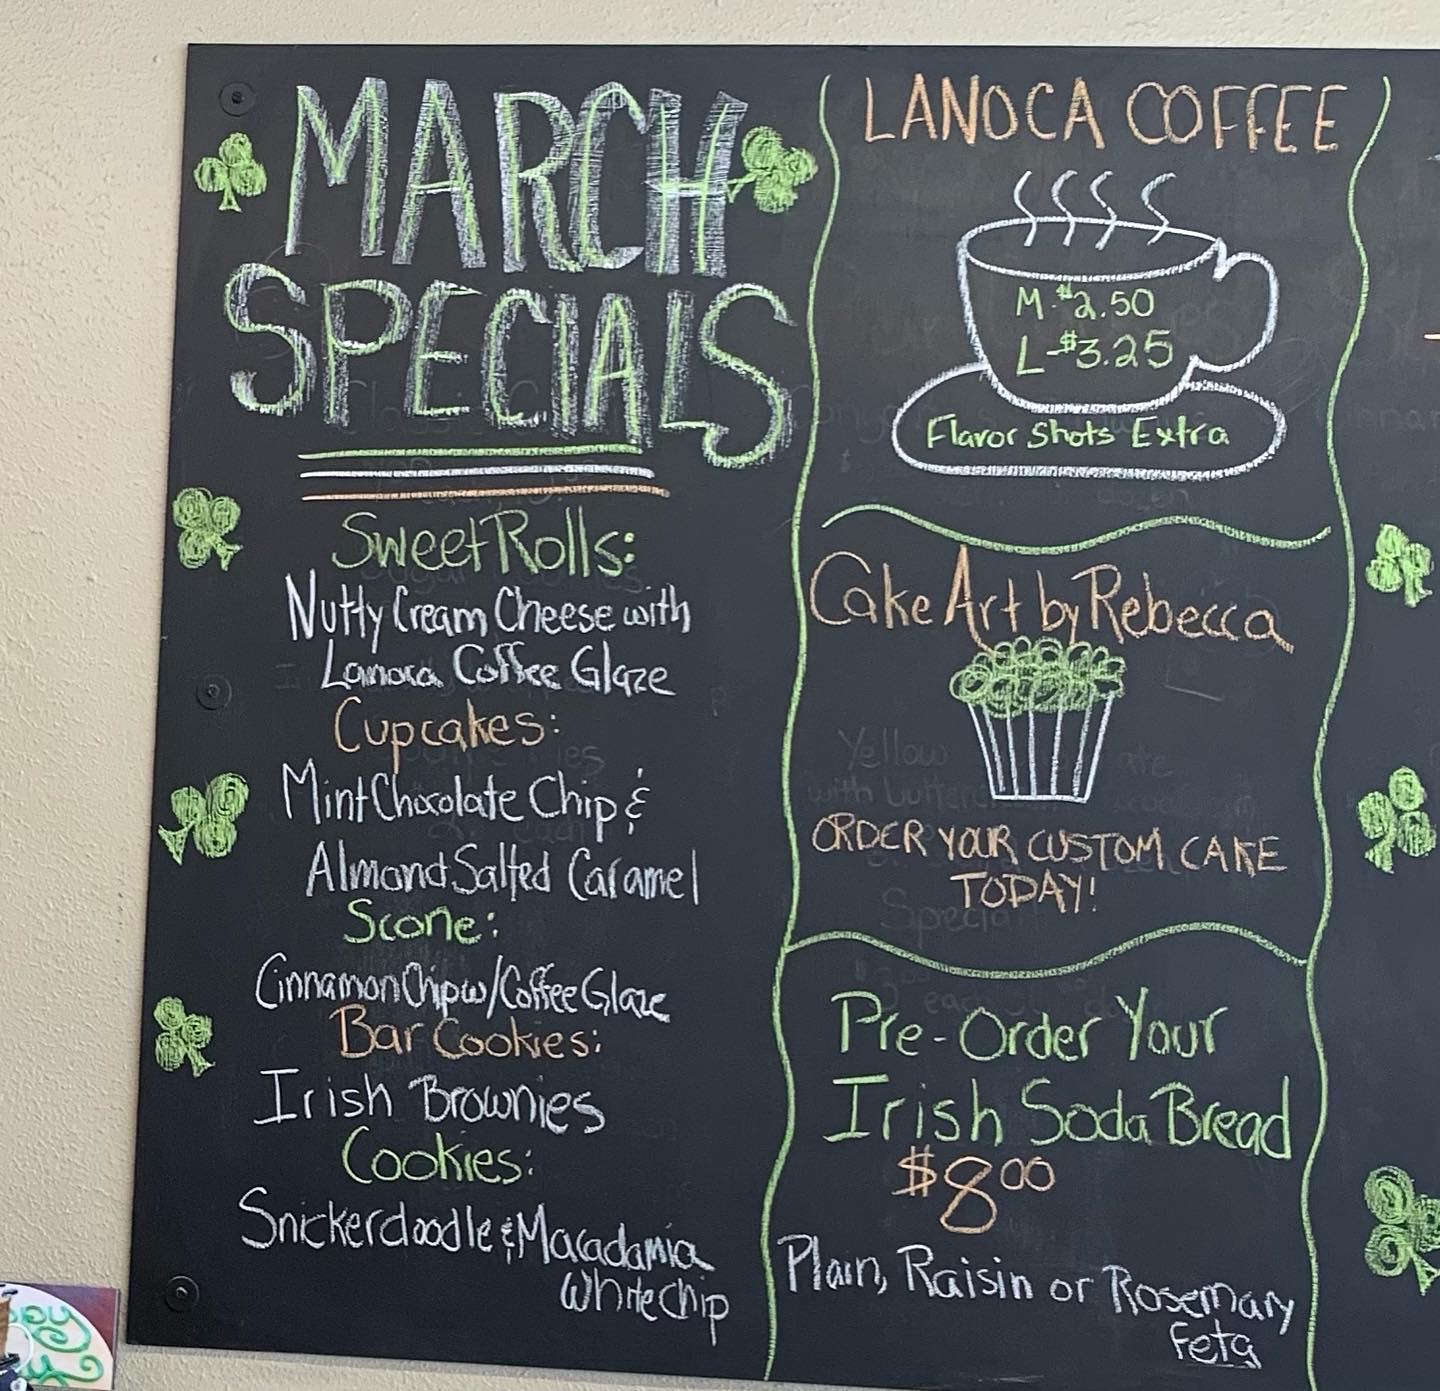 MARCH
SPECIALS
Sweet Rolls:
Nutty Cream Cheese with
Lanoca Coffee Glaze
Cupcakes:
Mint Chocolate Chip &
Almond Salted Caramel
Scone:
Cinnamon Chip w/Coffee Glaze
Bar Cookies:
Irish Brownies
Cookies:
Snickerdoodle & Macadamia
White Chip
LANOCA COFFEE
M-$2.50
L-$3.25
Flavor Shots Extra
Cake Art by Rebecca
ORDER YOUR CUSTOM CAKE
TODAY!
Pre-Order Your
Irish Soda Bread
$8.00
Plain, Raisin or Rosemary
Feta